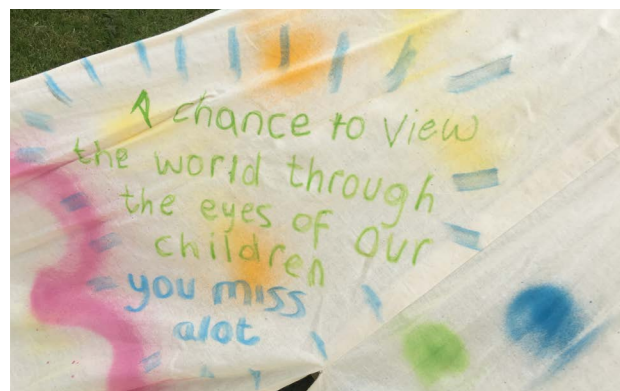 A chance to view
the world through
the eyes of our
children
you miss
alot